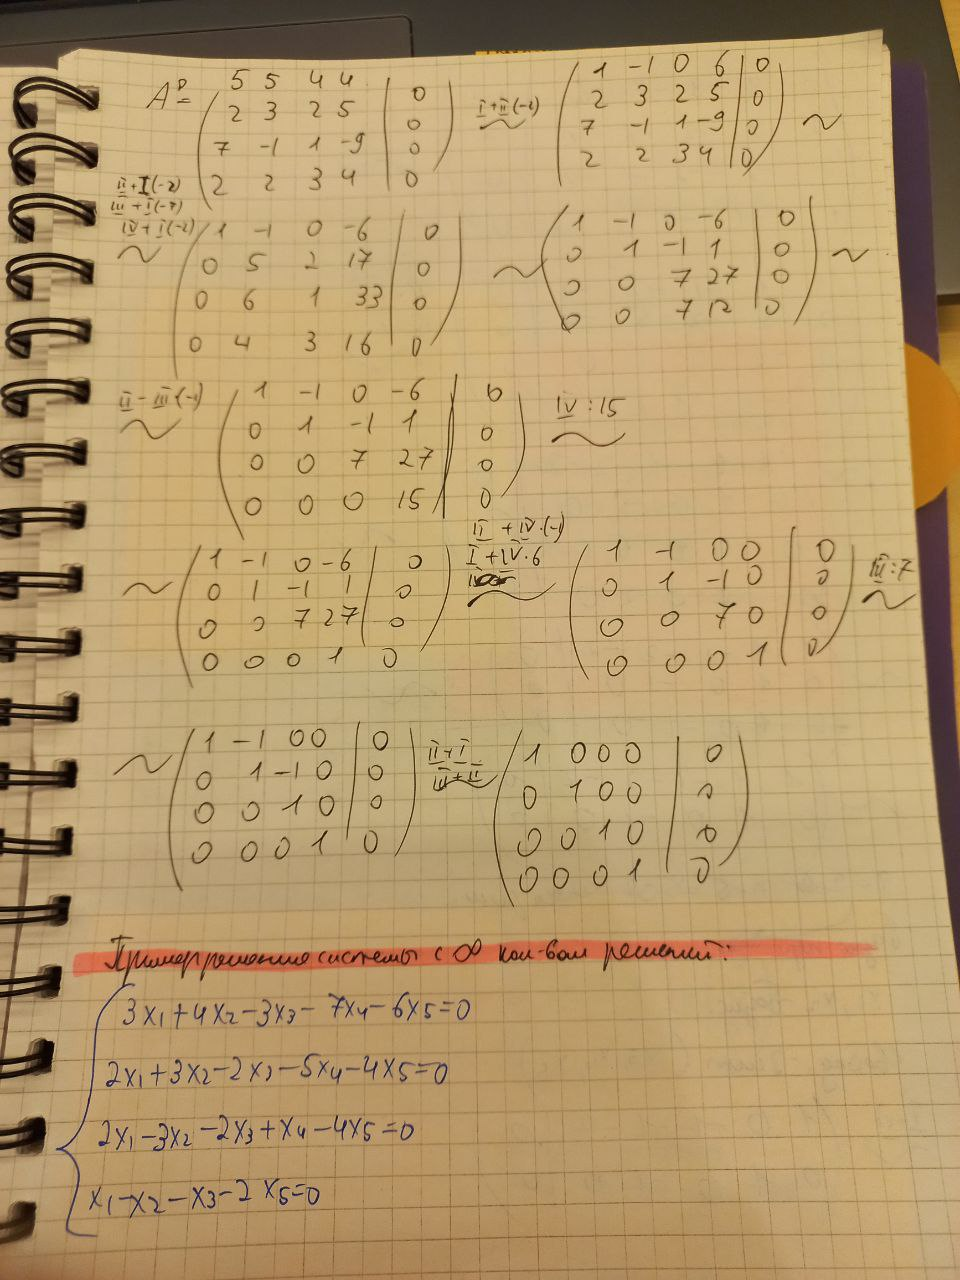 A^p =
5 5 4 4 | 0
2 3 2 5 | 0
7 -1 1 -9 | 0
2 2 3 4 | 0
I+II(-2)
~
1 -1 0 6 | 0
2 3 2 5 | 0
7 -1 1 -9 | 0
2 2 3 4 | 0
~
II+I(-2)
III+I(-7)
IV+I(-2)
~
1 -1 0 -6 | 0
0 5 2 17 | 0
0 6 1 33 | 0
0 4 3 16 | 0
~
1 -1 0 -6 | 0
0 1 -1 1 | 0
0 0 7 27 | 0
0 0 7 12 | 0
~
II-III·(-1)
~
1 -1 0 -6 | 0
0 1 -1 1 | 0
0 0 7 27 | 0
0 0 0 15 | 0
IV:15
~
~
1 -1 0 -6 | 0
0 1 -1 1 | 0
0 0 7 27 | 0
0 0 0 1 0
II+IV·(-1)
I+IV·6
~
1 -1 0 0 | 0
0 1 -1 0 | 0
0 0 7 0 | 0
0 0 0 1 | 0
III:7
~
~
1 -1 0 0 | 0
0 1 -1 0 | 0
0 0 1 0 | 0
0 0 0 1 0
II+I
III+II
~
1 0 0 0 | 0
0 1 0 0 | 0
0 0 1 0 | 0
0 0 0 1 0
Пример решение системы с ∞ кол-вом решений:
3x1+4x2-3x3-7x4-6x5=0
2x1+3x2-2x3-5x4-4x5=0
2x1-3x2-2x3+x4-4x5=0
x1-x2-x3-2x5=0